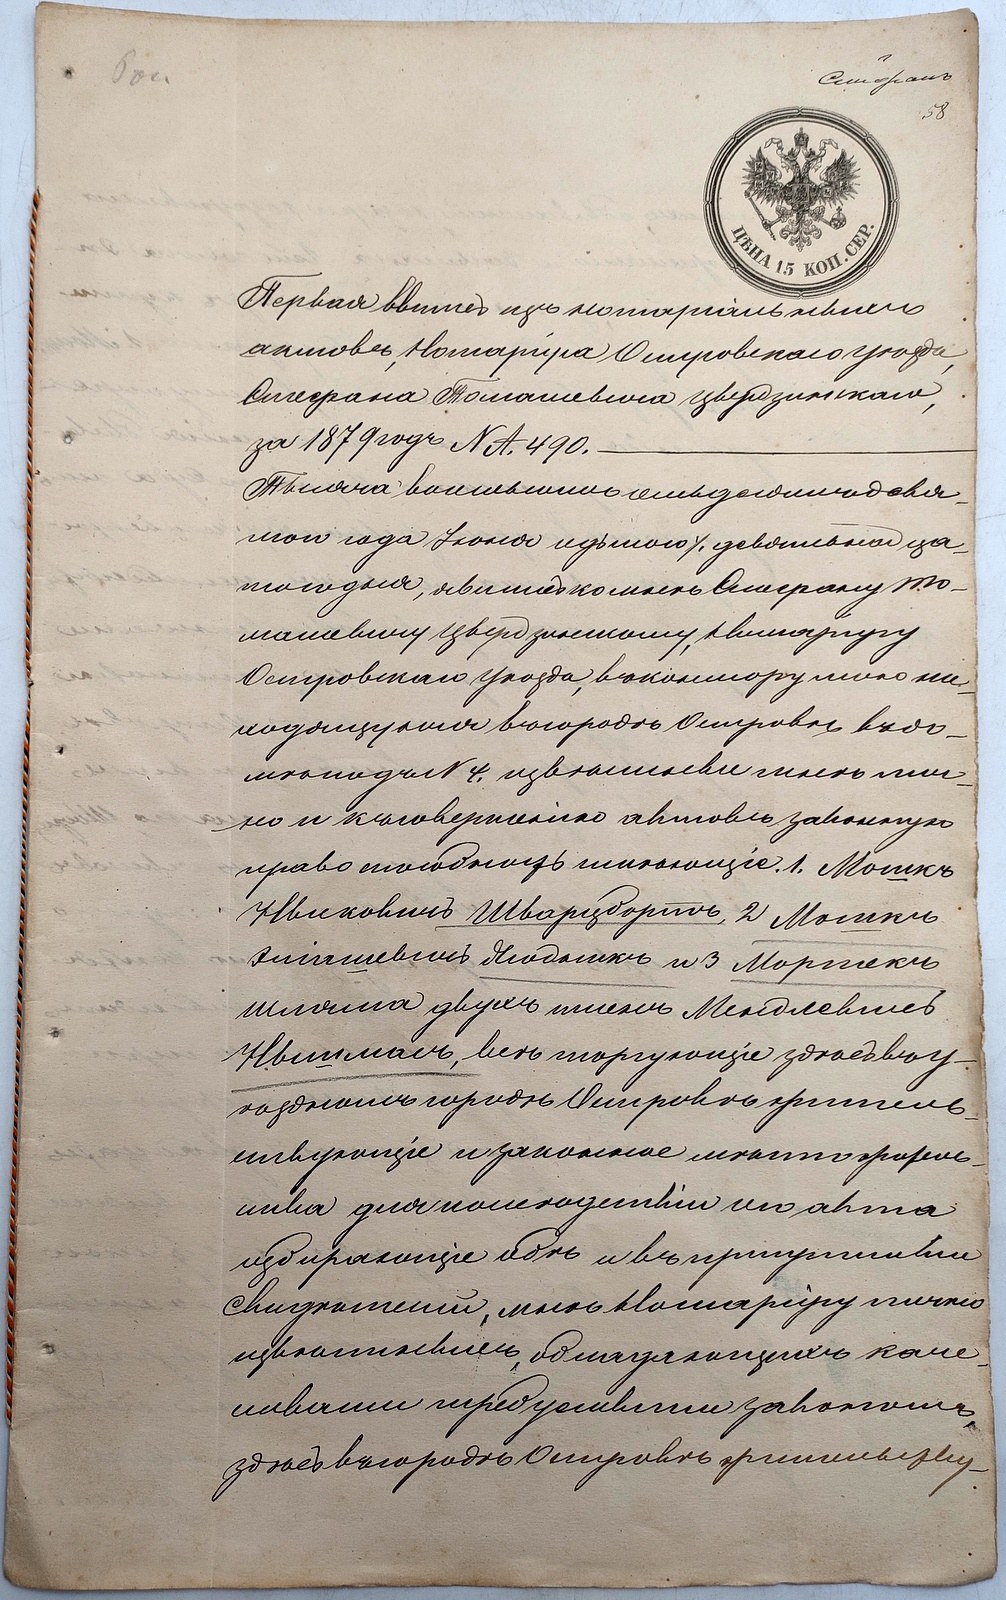 58
ЦѢНА 15 КОП. СЕР.
Первая выпись изъ нотаріальныхъ
актовъ, Нотаріуса Островскаго уѣзда,
Стефана Томашевича Цвердзинскаго,
за 1879 годъ N А. 490.
Тысяча восемьсотъ семьдесятъ девя-
того года Іюня
дня, явились ко мнѣ Стефану То-
машевичу Цвердзинскому, Нотаріусу
Островскаго уѣзда, въ контору мою на-
ходящуюся въ городѣ Островѣ въ до-
мѣ подъ N 4. извѣстные мнѣ лич-
но и къ совершенію актовъ законную
право способность имѣющіе. 1. Мошкъ
Ицковичъ Шварцбортъ, 2 Мошкъ
и 3 Мортекъ
Шлёма двухъ именъ Менделевичъ
всѣ торгующіе здѣсь въ у-
ѣздномъ городѣ Островѣ житель-
ствующіе и законное мѣсто житель-
ства для послѣдствій сего акта
избирающіе себѣ и въ присутствіи
Свидѣтелей, мнѣ Нотаріусу лично
извѣстныхъ, обладающихъ каче-
ствами требуемыми закономъ,
здѣсь въ городѣ Островѣ жительству-